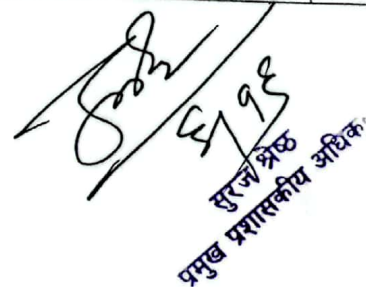 ६/१६
सुरज श्रेष्ठ
प्रमुख प्रशासकीय अधिक